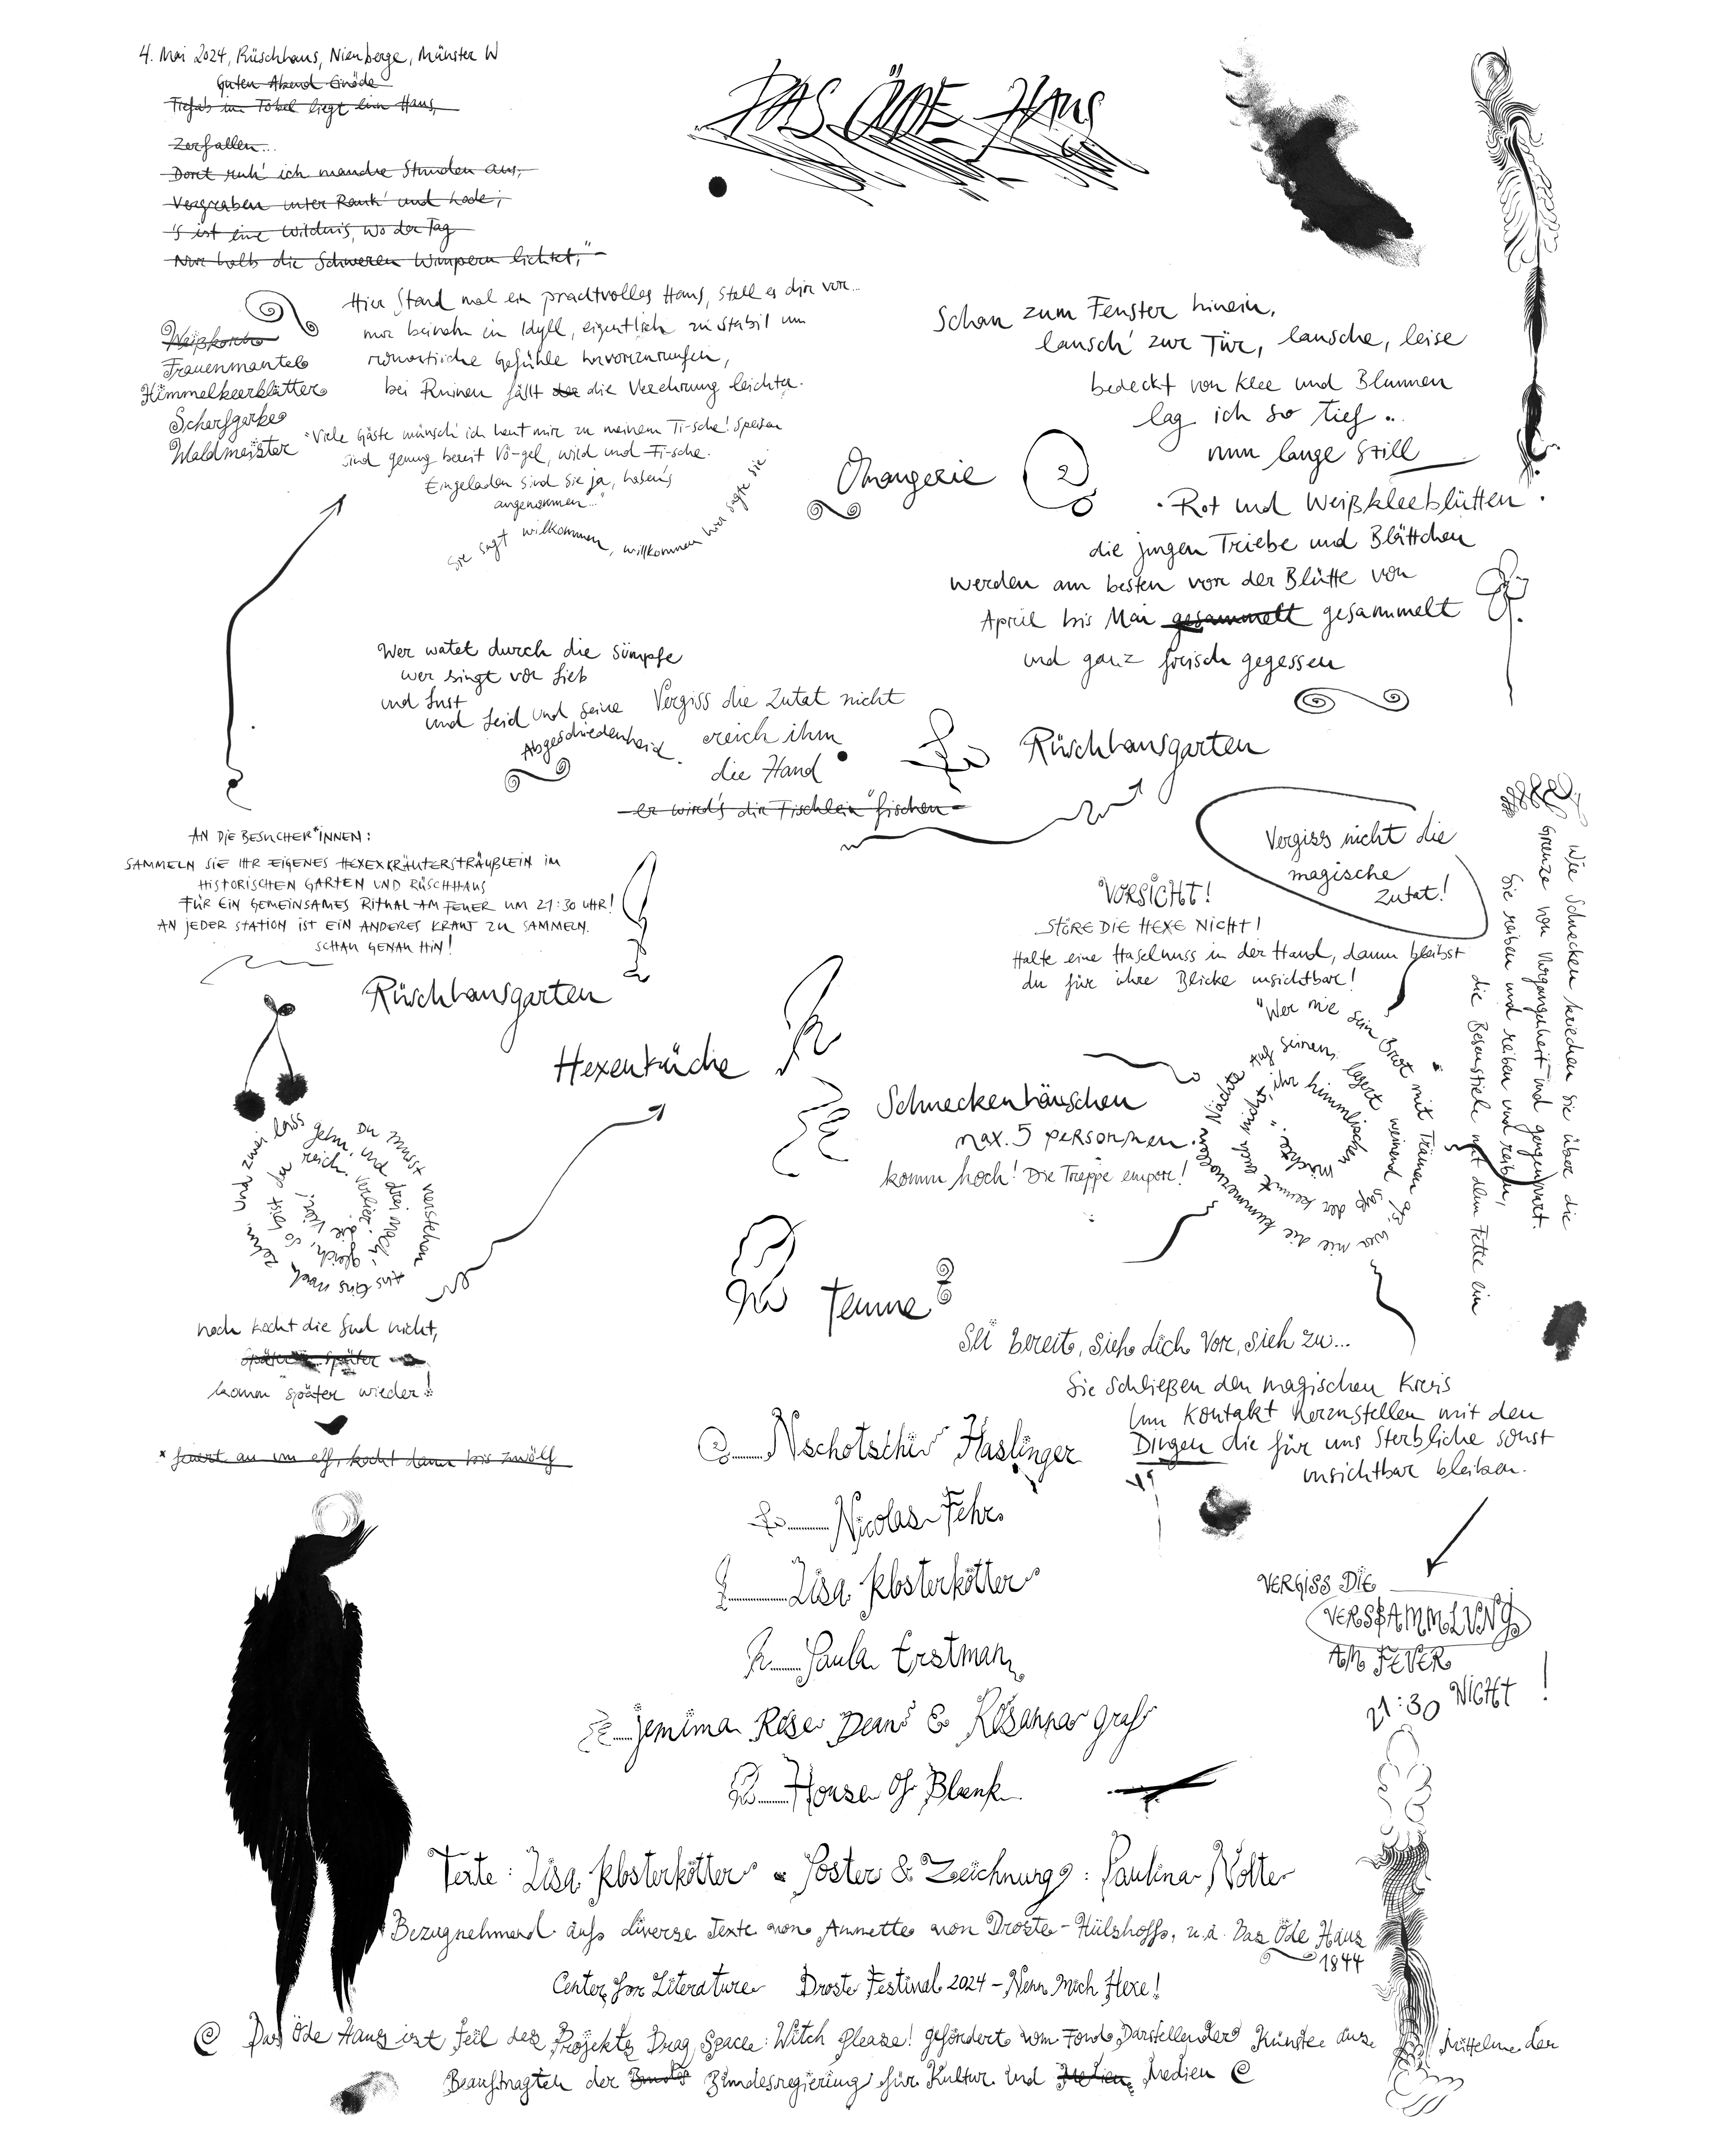 4. Mai 2024, Rüschhaus, Nienberge, Münster W
Guten Abend Einöde
Tiefab im Tobel liegt ein Haus,
Zerfallen...
Dort ruh' ich manche Stunden aus,
Vergraben unter Rank' und Lode;
's ist eine Wildnis, wo der Tag
Nur halb die schweren Wimpern lichtet;"-
DAS ÖDE HAUS
Hier stand mal ein prachtvolles Haus, stell es dir vor...
nur beinah ein Idyll, eigentlich zu stabil um
romantische Gefühle hervorzurufen,
bei Ruinen fällt der die Verehrung leichter.
Frauenmantel
Himmelkeerblätter
Scharfgarbe
Waldmeister
"Viele Gäste wünsch' ich heut mir zu meinem Ti-sche! Speisen
sind genung bereit Vö-gel, wild und Fi-sche.
Eingeladen sind sie ja, haben's
angenommen..."
Sie sagt willkommen, willkommen hier sagte sie
Schau zum Fenster hinein,
lausch' zur Tür, lausche, leise
bedeckt von Klee und Blumen
lag ich so tief..
nun lange still
Orangerie
· Rot und Weißkleeblütten ·
die jungen Triebe und Blättchen
werden am besten vor der Blütte von
April bis Mai gesammelt gesammelt
und ganz frisch gegessen
Wer watet durch die Sümpfe
wer singt vor Lieb
und Lust
und Leid und seine
Abgeschiedenheid.
Vergiss die Zutat nicht
reich ihm
die Hand
er wird's dir Fischlein" fischen
Rüschhausgarten
AN DIE BESUCHER*INNEN:
SAMMELN SIE IHR EIGENES HEXEXKRÄUTERSTRÄUßLEIN IM
HISTORISCHEN GARTEN UND RÜSCHHAUS
FÜR EIN GEMEINSAMES RITUAL AM FEUER UM 21:30 UHR!
AN JEDER STATION IST EIN ANDERES KRAUT ZU SAMMELN.
SCHAU GENAU HIN!
Rüschhausgarten
Vergiss nicht die
magische
Zutat!
VORSICHT!
STÖRE DIE HEXE NICHT!
Halte eine Haselnuss in der Hand, dann bleibst
du für ihre Blicke unsichtbar!
Wie Schnecken kriechen sie über die
Grenze von Vergangenheit und gegenwart.
Sie reiben und reiben und reiben,
die Besenstiele mit dem Fette ein
Hexenküche
"Wer nie sein Brot mit Tränen aß, wer nie die kummervollen Nächte
Auf seinem
weinend saß, der kennt euch nicht, ihr himmlischen mächte."
Schneckenhäuschen
max. 5 personnen.
komm hoch! Die Treppe empor!
Du musst verstehen
Aus Eins mach Zehn und zwei lass gehn, und drei mach gleich, so bist du reich. Verlier die vier!
noch kocht die Sud nicht,
später... später
komm später wieder!
* feuert an um elf, kocht dann bis zwölf
Tenne
Sei bereit, sieh dich vor, sieh zu...
Sie schließen den magischen Kreis
Um Kontakt herzustellen mit den
Dingen die für uns Sterbliche sonst
unsichtbar bleiben.
Nschotschi Haslinger
Nicolas Fehr
Lisa Klosterkötter
Paula Erstmann
Jemima Rose Dean & Rosanna Graf
House Of Blank
VERGISS DIE
VERSAMMLUNG
AM FEUER
21:30 NICHT!
Texte: Lisa Klosterkötter - Poster & Zeichnung: Paulina Nolte
Bezugnehmend aufs diverse Texte von Annette von Droste-Hülshoffs, u.a. Das Öde Haus
1844
Center for Literature Droste Festival 2024 - Nenn Mich Hexe!
Das Öde Haus ist Teil des Projekts Drag Space: Witch Please! gefördert vom Fonds Darstellender Künste aus Mitteln der
Beauftragten der Bundesregierung für Kultur und Medien Medien